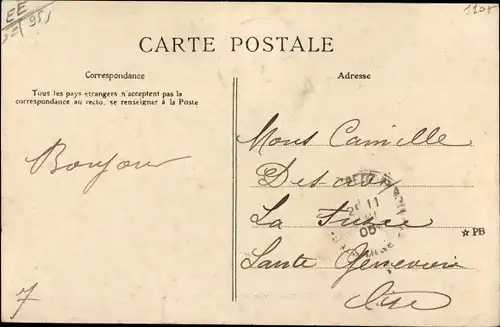 EE
CARTE POSTALE
Correspondance
Tous les pays etrangers n'acceptent pas la
correspondance au recto, se renseigner à la Poste
Adresse
Bonjour
Mons Camille
La
05
☆ PB
Sainte Genevieve
Oise
7